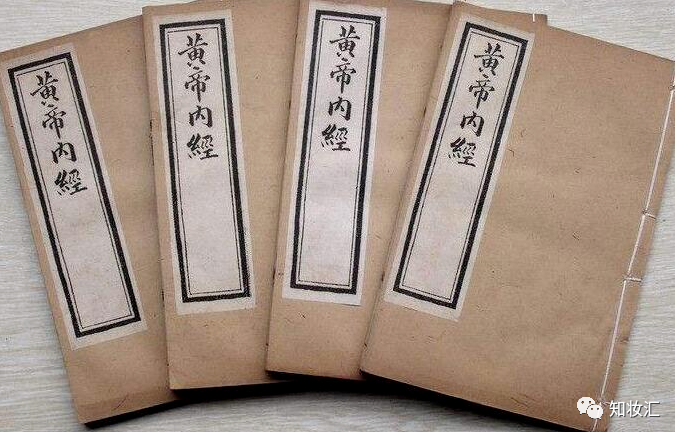 黄帝内經
黄帝内經
黄帝内經
黄帝内經
知妆汇